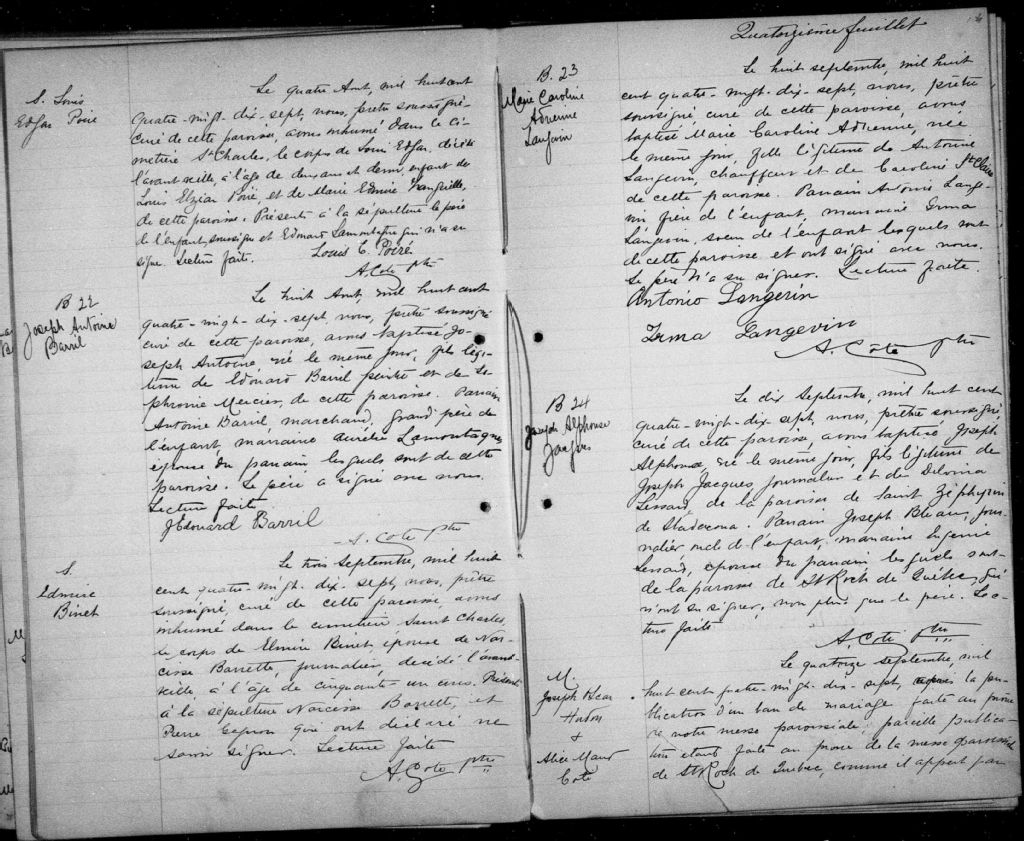 S. Louis
Edgar Poiré
Le quatre Aout, mil huit cent
quatre-vingt-dix-sept, nous, prêtre soussigné
curé de cette paroisse, avons inhumé dans le ci-
metière St Charles, le corps de Louis Edgar, décédé
l'avant veille, à l'âge de deux ans et demi, enfant de
Louis Elzéar Poiré, et de Marie Edmire
de cette paroisse. Présents à la sépulture le père
de l'enfant, soussigné et Edouard Lamontagne qui n'a su
signer. Lecture faite.
Louis E. Poiré
A. Coté ptre
B 22
Joseph Antoine
Barril
Le huit Aout, mil huit cent
quatre-vingt-dix-sept, nous, prêtre soussigné
curé de cette paroisse, avons baptisé Jo-
seph Antoine, né le même jour, fils légi-
time de Edouard Barril peintre et de So-
phronie Mercier, de cette paroisse. Parrain
Antoine Barril, marchand, grand-père de
l'enfant, marraine Aurélie Lamontagne
épouse du parrain lesquels sont de cette
paroisse. Le père a signé avec nous.
Lecture faite
JEdouard Barril
A. Coté ptre
S.
Edmire
Binet
Le trois Septembre, mil huit
cent quatre-vingt-dix-sept, nous, prêtre
soussigné, curé de cette paroisse, avons
inhumé dans le cimetière Saint Charles,
le corps de Elmire Binet, épouse de Nar-
cisse Barrette, journalier, décédé l'avant
veille, à l'âge de cinquante-un ans. Présents
à la sépulture Narcisse Barrette, et
Pierre Gagnon qui ont déclaré ne
savoir signer. Lecture faite
A. Coté ptre
Quatorzième feuillet
B. 23
Marie Caroline
Adrienne
Langevin
Le huit septembre, mil huit
cent quatre-vingt-dix-sept, nous, prêtre
soussigné, curé de cette paroisse, avons
baptisé Marie Caroline Adrienne, née
le même jour, fille légitime de Antoine
Langevin, chauffeur et de Caroline St Claire
de cette paroisse. Parrain Antonio Lange-
vin frère de l'enfant, marraine Irma
Langevin, soeur de l'enfant lesquels sont
de cette paroisse et ont signé avec nous.
Le père n'a su signer. Lecture faite.
Antonio Langevin
Irma Langevin
A. Côté ptre
B 24
Joseph Alphonse
Jacques
Le dix Septembre, mil huit cent
quatre-vingt-dix sept, nous, prêtre soussigné,
curé de cette paroisse, avons baptisé Joseph
Alphonse, né le même jour, fils légitime de
Joseph Jacques journalier et de Delvina
Lessard, de la paroisse de Saint Zéphyrin
de Stadacona. Parrain Joseph Bluteau, jour-
nalier oncle de l'enfant, marraine Eugénie
Lessard, épouse du parrain lesquels sont
de la paroisse de St Roch de Québec, qui
n'ont su signer, non plus que le père. Lec-
ture faite
A. Coté ptre
M.
Joseph
&
Alice Maud
Coté
Le quatorze septembre, mil
huit cent quatre-vingt-dix-sept, la pu-
blication d'un ban de mariage faite au prône
de notre messe paroissiale, pareille publica-
tion étant faite au prône de la messe paroissiale
de St Roch de Quebec, comme il appert par